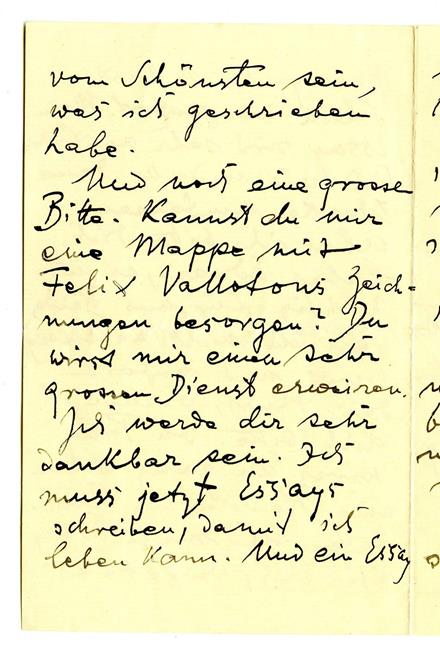 vom Schönsten sein,
was ich geschrieben
habe.
Und noch eine grosse
Bitte. Kannst du mir
eine Mappe mit
Felix Vallotons Zeich-
nungen besorgen? Du
wirst mir einen sehr
grossen Dienst erweisen.
Ich werde dir sehr
dankbar sein. Ich
muss jetzt Essays
schreiben, damit ich
leben kann. Und ein Essay